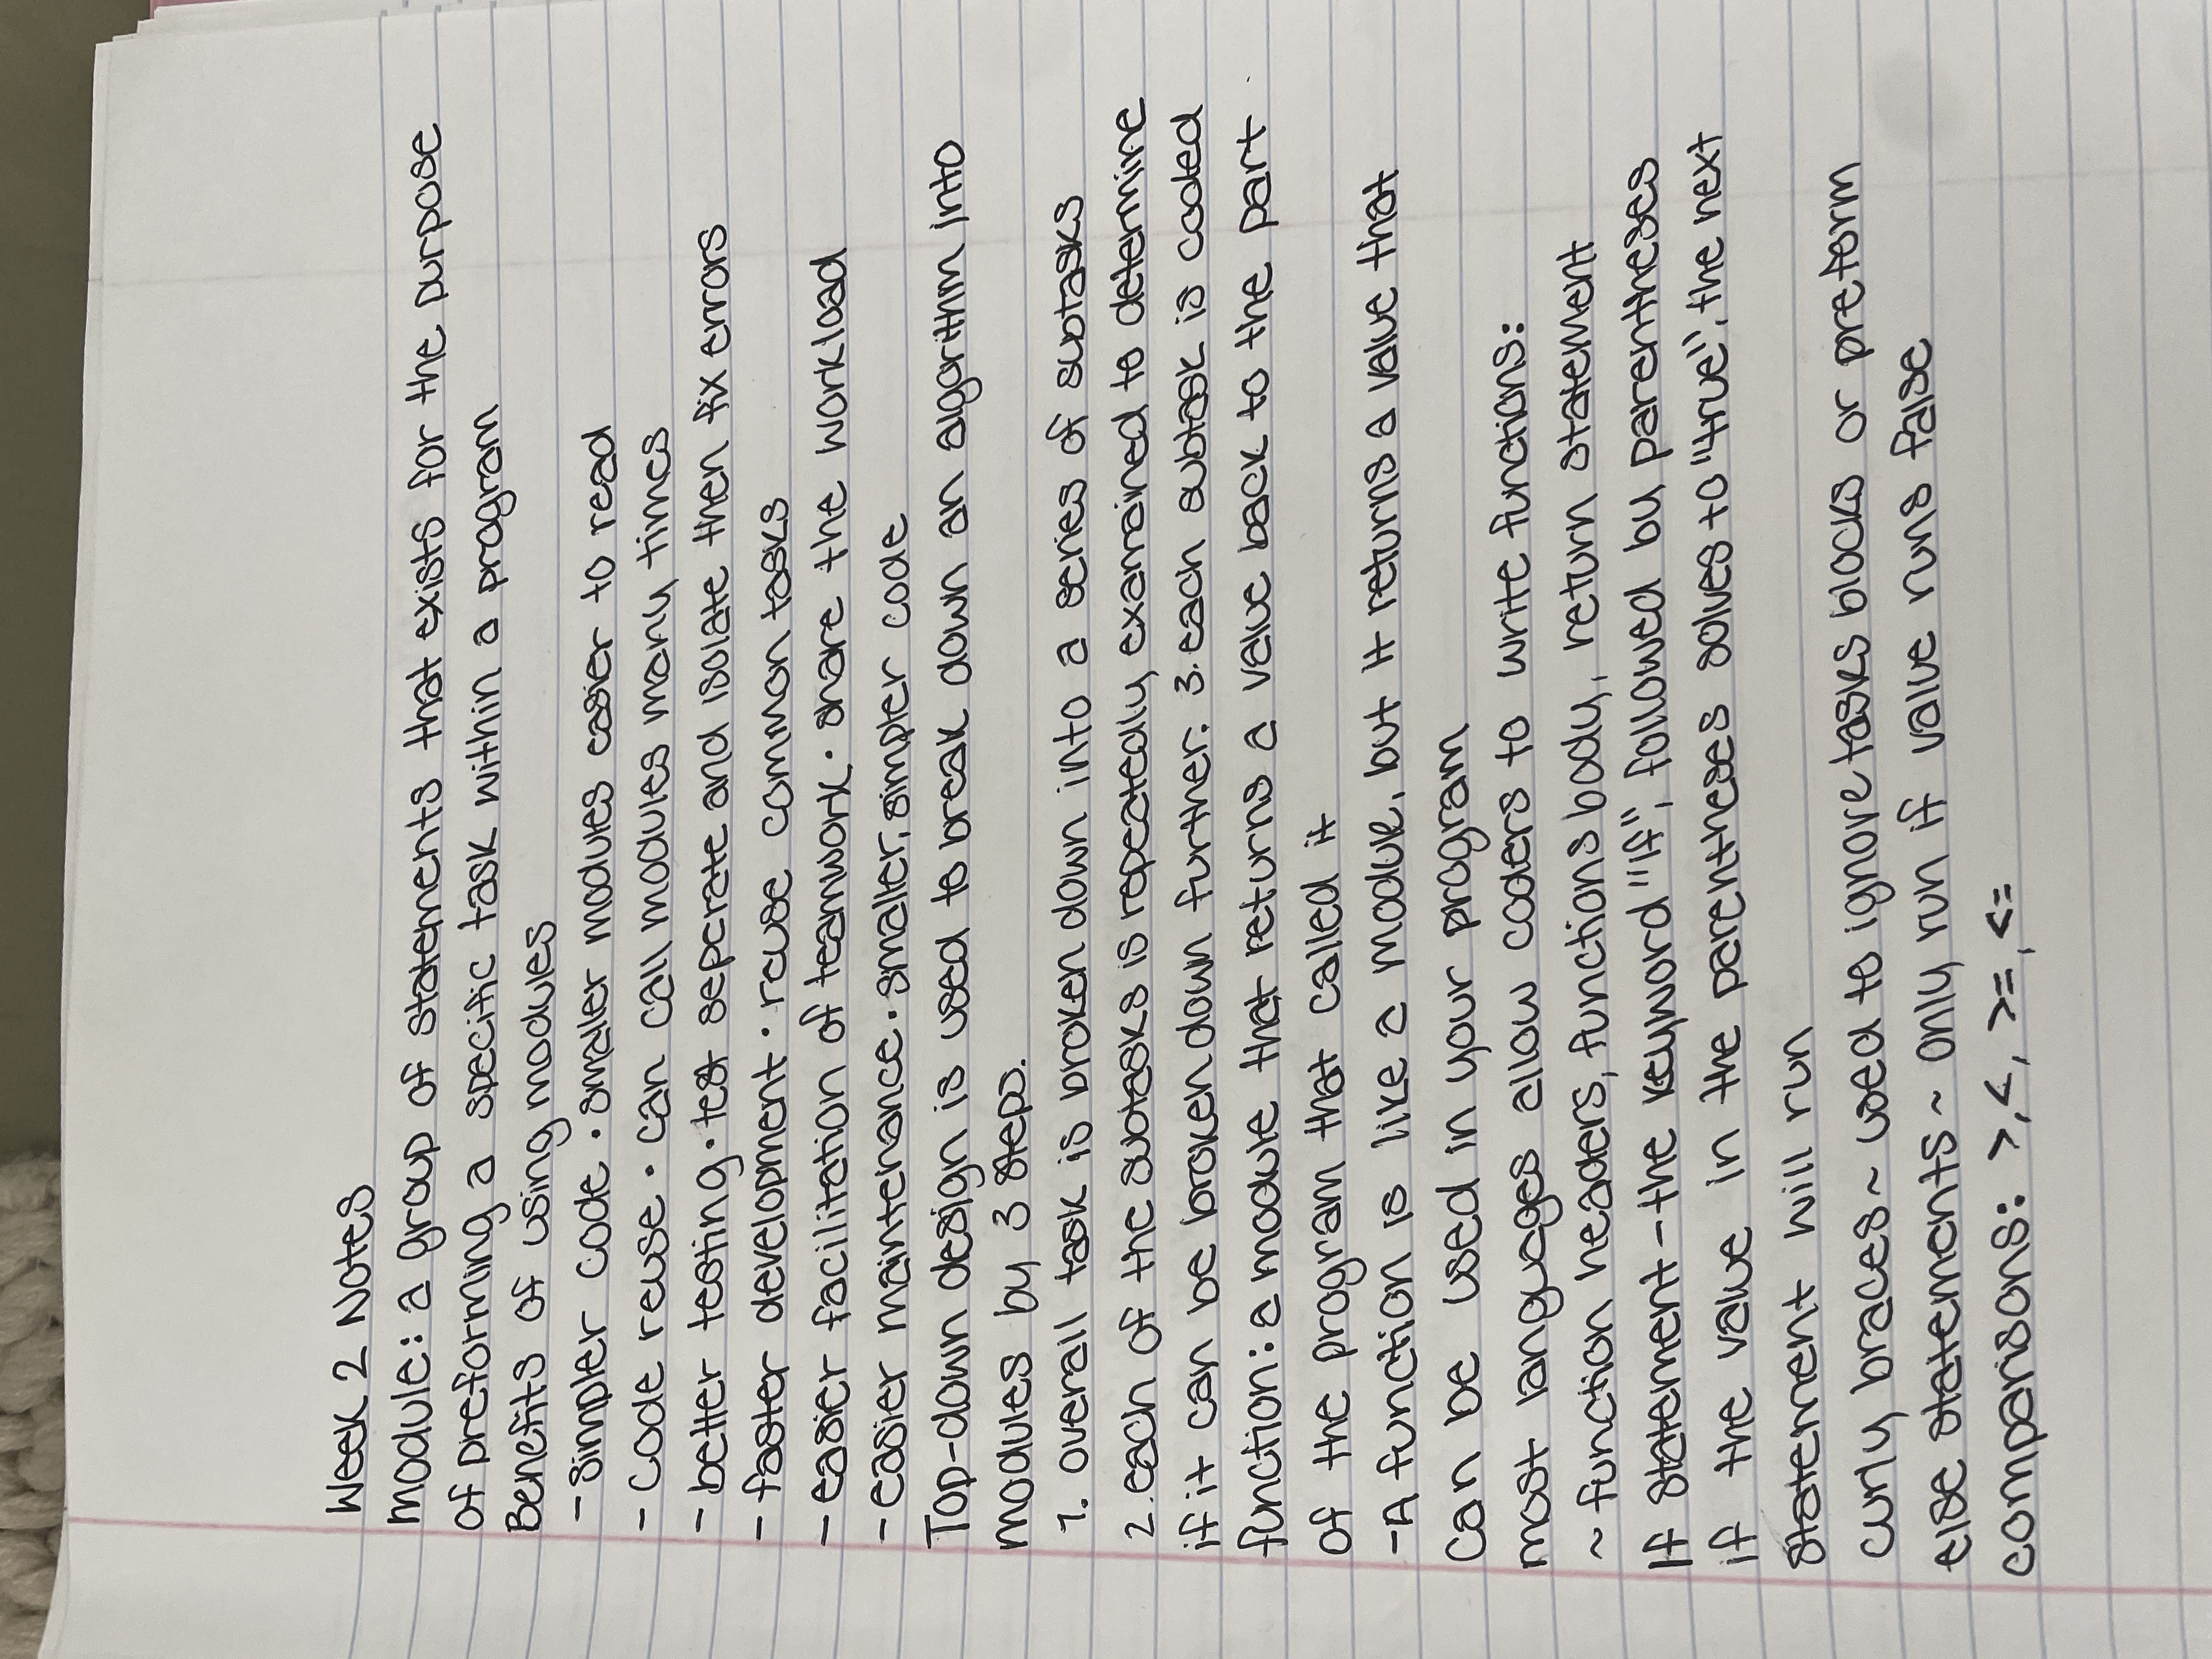 Week 2 Notes
module: a group of statements that exists for the purpose
of preforming a specific task within a program
Benefits of using modules
- simpler code · smaller modules easier to read
- Code reuse · can call modules many times
- better testing · test seperate and isolate then fix errors
- faster development · reuse common tasks
- easier facilitation of teamwork · share the workload
- easier maintenance · smaller, simpler code
Top-down design is used to break down an algorithm into
modules by 3 steps.
1. overall task is broken down into a series of subtasks
2. each of the subtasks is repeatedly examained to determine
if it can be broken down further. 3. each subtask is coded
function: a module that returns a value back to the part
of the program that called it
- A function is like a module, but it returns a value that
can be used in your program
most languages allow coders to write functions:
~ function headers, functions body, return statement
If statement - the keyword "If", followed by parentheses
if the value in the parentheses solves to "true", the next
statement will run
curly braces ~ used to ignore tasks blocks or preform
else statements ~ only run if value runs false
comparisons: >, <, >=, <=